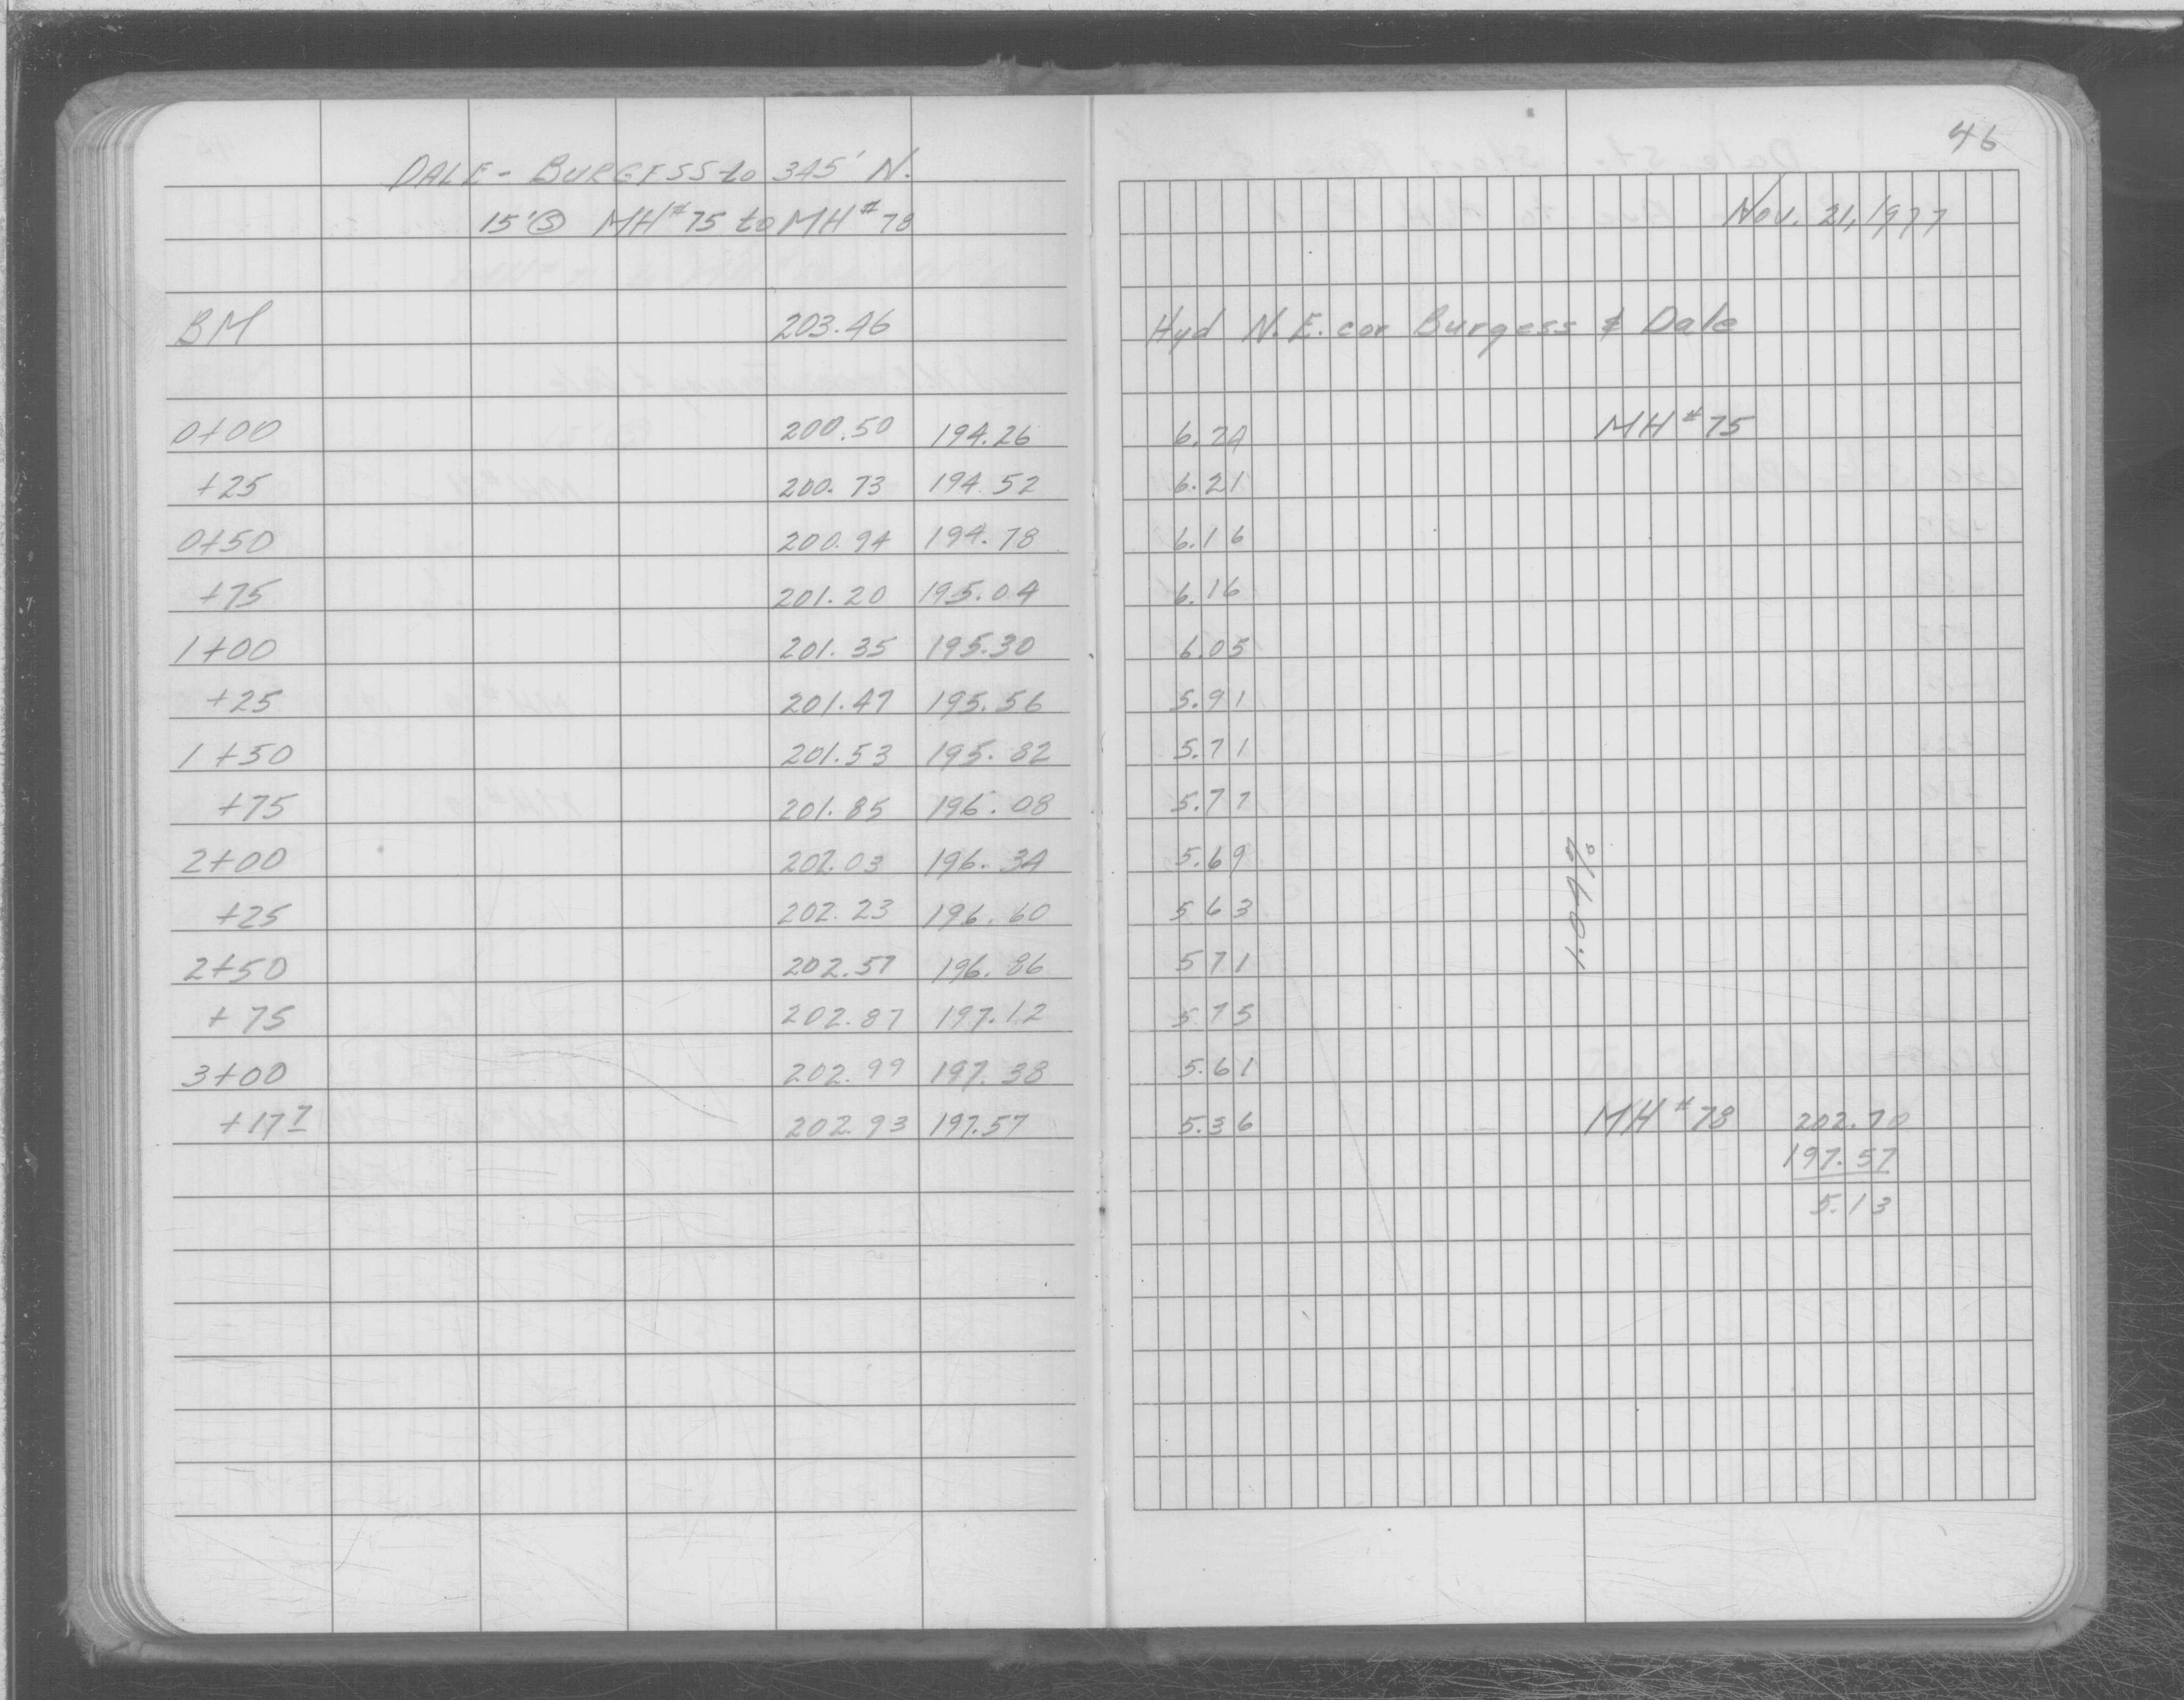 46
DALE - BURGESS to 345' N.
15'Ⓢ MH#75 to MH#78
Nov. 21, 1977
BM 203.46 Hyd N.E. cor Burgess & Dale
0+00 200.50 194.26 6.24 MH#75
+25 200.73 194.52 6.21
0+50 200.94 194.78 6.16
+75 201.20 195.04 6.16
1+00 201.35 195.30 6.05
+25 201.47 195.56 5.91
1+50 201.53 195.82 5.71
+75 201.85 196.08 5.77
2+00 202.03 196.34 5.69
+25 202.23 196.60 5.63
2+50 202.57 196.86 5.71
+75 202.87 197.12 5.75
3+00 202.99 197.38 5.61
+17 7 202.93 197.57 5.36 MH#78 202.70
197.57
5.13
1.04%